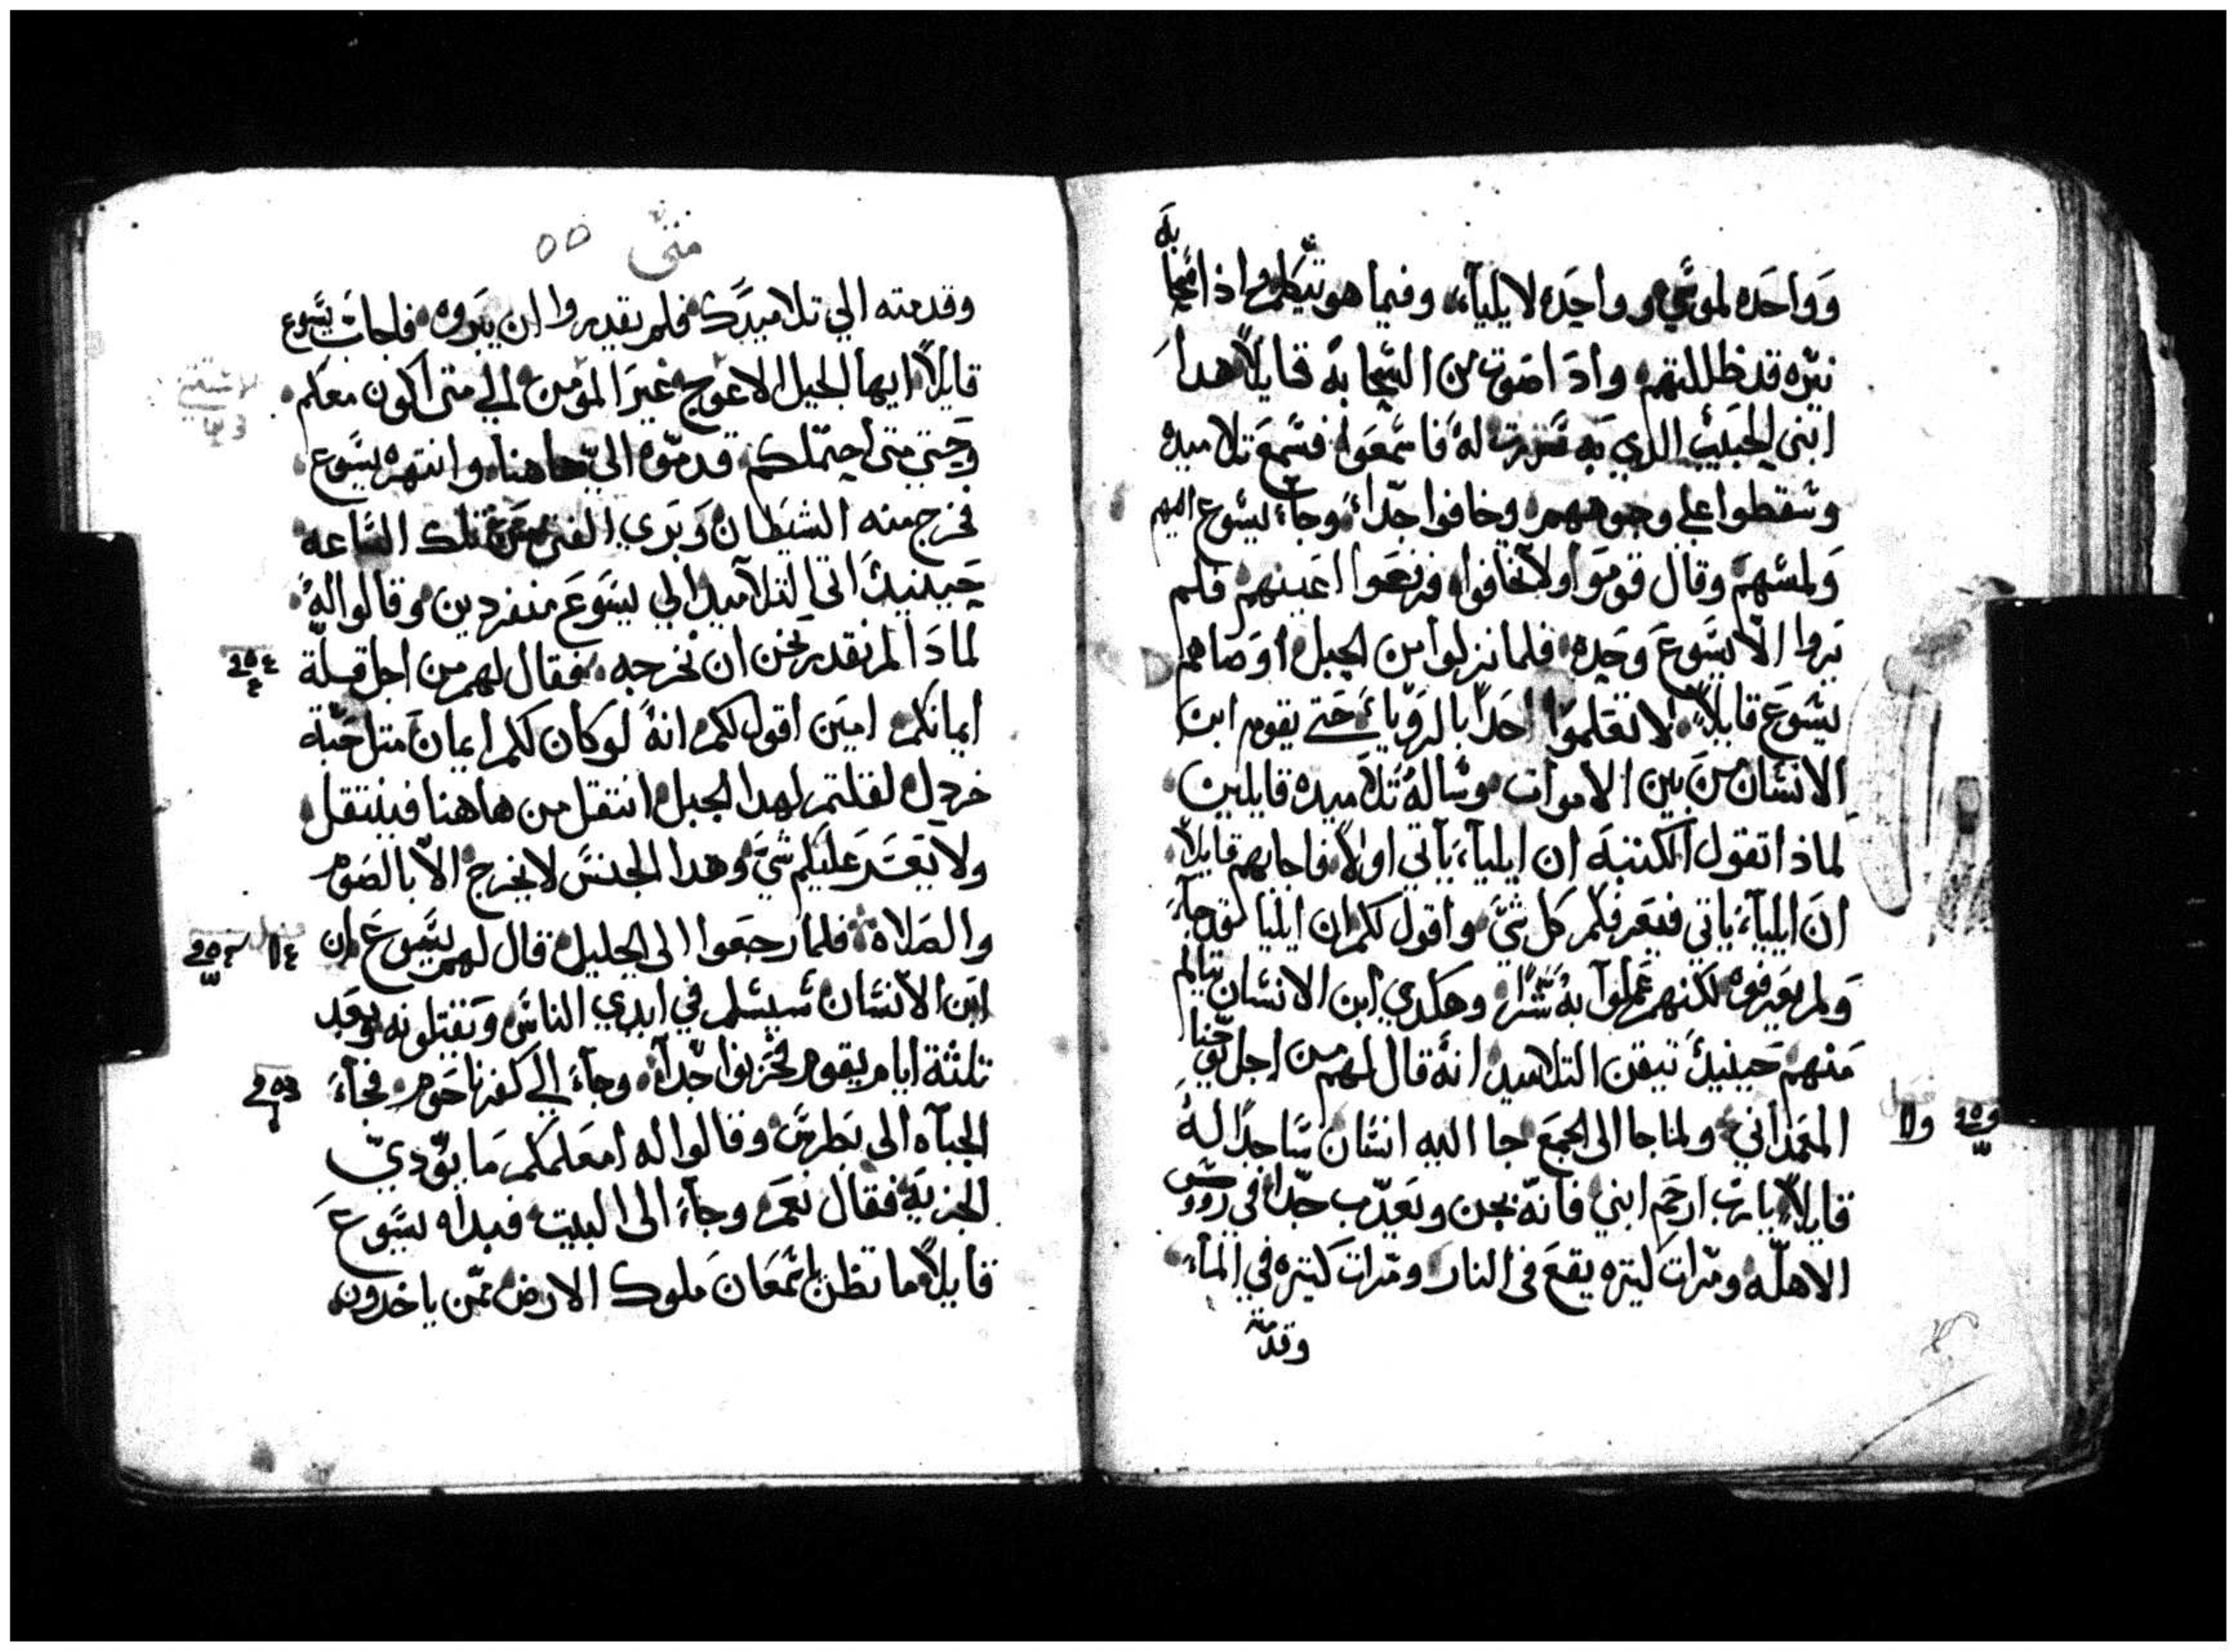 وواحده لموسي وواحده لايليآء وفيما هو يتكلم واذا سحابه
نيره قد ظللتهم واد اصوت من السحابه قايلاً هدا
ابني الحبيب الدي به سررت له فاسمعوا فسمع تلاميده
وسقطوا علي وجوههم وخافوا جدا وجاء يسوع اليهم
ولمسهم وقال قوموا ولا تخافوا فرفعوا اعينهم فلم
يروا الا يسوع وحده فلما نزلوا من الجبل اوصاهم
يسوع قايلاً لا تعلموا احداً بالرويا حتي يقوم ابن
الانسان من بين الاموات وساله تلاميده قايلين
لماذا تقول الكتبه ان ايليآء ياتي اولاً فاجابهم قايلاً
ان ايليآء ياتي فيعرفكم كل شي واقول لكم ان ايليا لقد جآء
ولم يعرفوه لكنهم عملوا به شراً وهكدي ابن الانسان يتالم
منهم حينيدٍ تيقن التلاميد انه قال لهم من اجل يوحنا
المعمداني ولما جا الى الجمع جا اليه انسان ساجداً له
قايلاً يارب ارحم ابني فانه يجن ويعدب جدا في رووس
الاهلّه ومرات كتيره يقع في النار ومرات كتيره في المآء
وقدمته
متى ٥٥
وقدمته الي تلاميدك فلم يقدروا ان يبروه فاجاب يسوع
قايلاً ايها الجيل الاعوج غير المومن الي متى اكون معكم
وحتي متى احتملكم قدموه الي هاهنا وانتهره يسوع
فخرج منه الشيطان وبري الفتى من تلك الساعه
حينيدٍ اتي التلاميد الي يسوع منفردين وقالوا له
لمادا لم نقدر نحن ان نخرجه فقال لهم من اجل قلة
ايمانكم امين اقول لكم انه لو كان لكم ايمان متل حبة
خردل لقلتم لهدا الجبل انتقل من هاهنا فينتقل
ولا يعسر عليكم شي وهدا الجنس لا يخرج الا بالصوم
والصلاة فلما رجعوا الى الجليل قال لهم يسوع ان
ابن الانسان سيسلم في ايدي الناس ويقتلونه وبعد
تلثة ايام يقوم فحزنوا جداً وجاء الي كفرناحوم فجآء
الجباه الى بطرس وقالوا له امعلمكم ما يودي
الجزية فقال نعم وجاء الى البيت فبداه يسوع
قايلاً ما تظن يا سمعان ملوك الارض ممن ياخدون